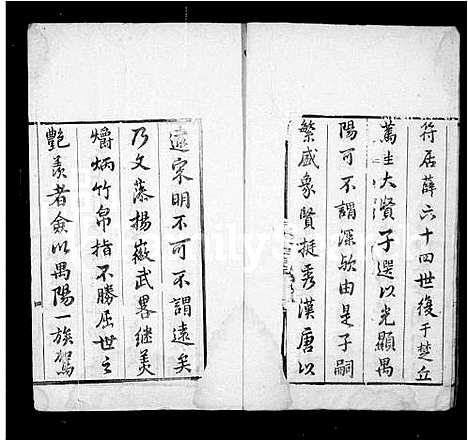 符居薛六十四世復于楚丘
萬生大賢子選以光顯禺
陽可不謂深歟由是子嗣
繁盛象賢挺秀漢唐以
逮宋明不可不謂遠矣
乃文藻揚徽武畧继美
爝炳竹帛指不勝屈世之
艷羨者僉以禺陽一族駕